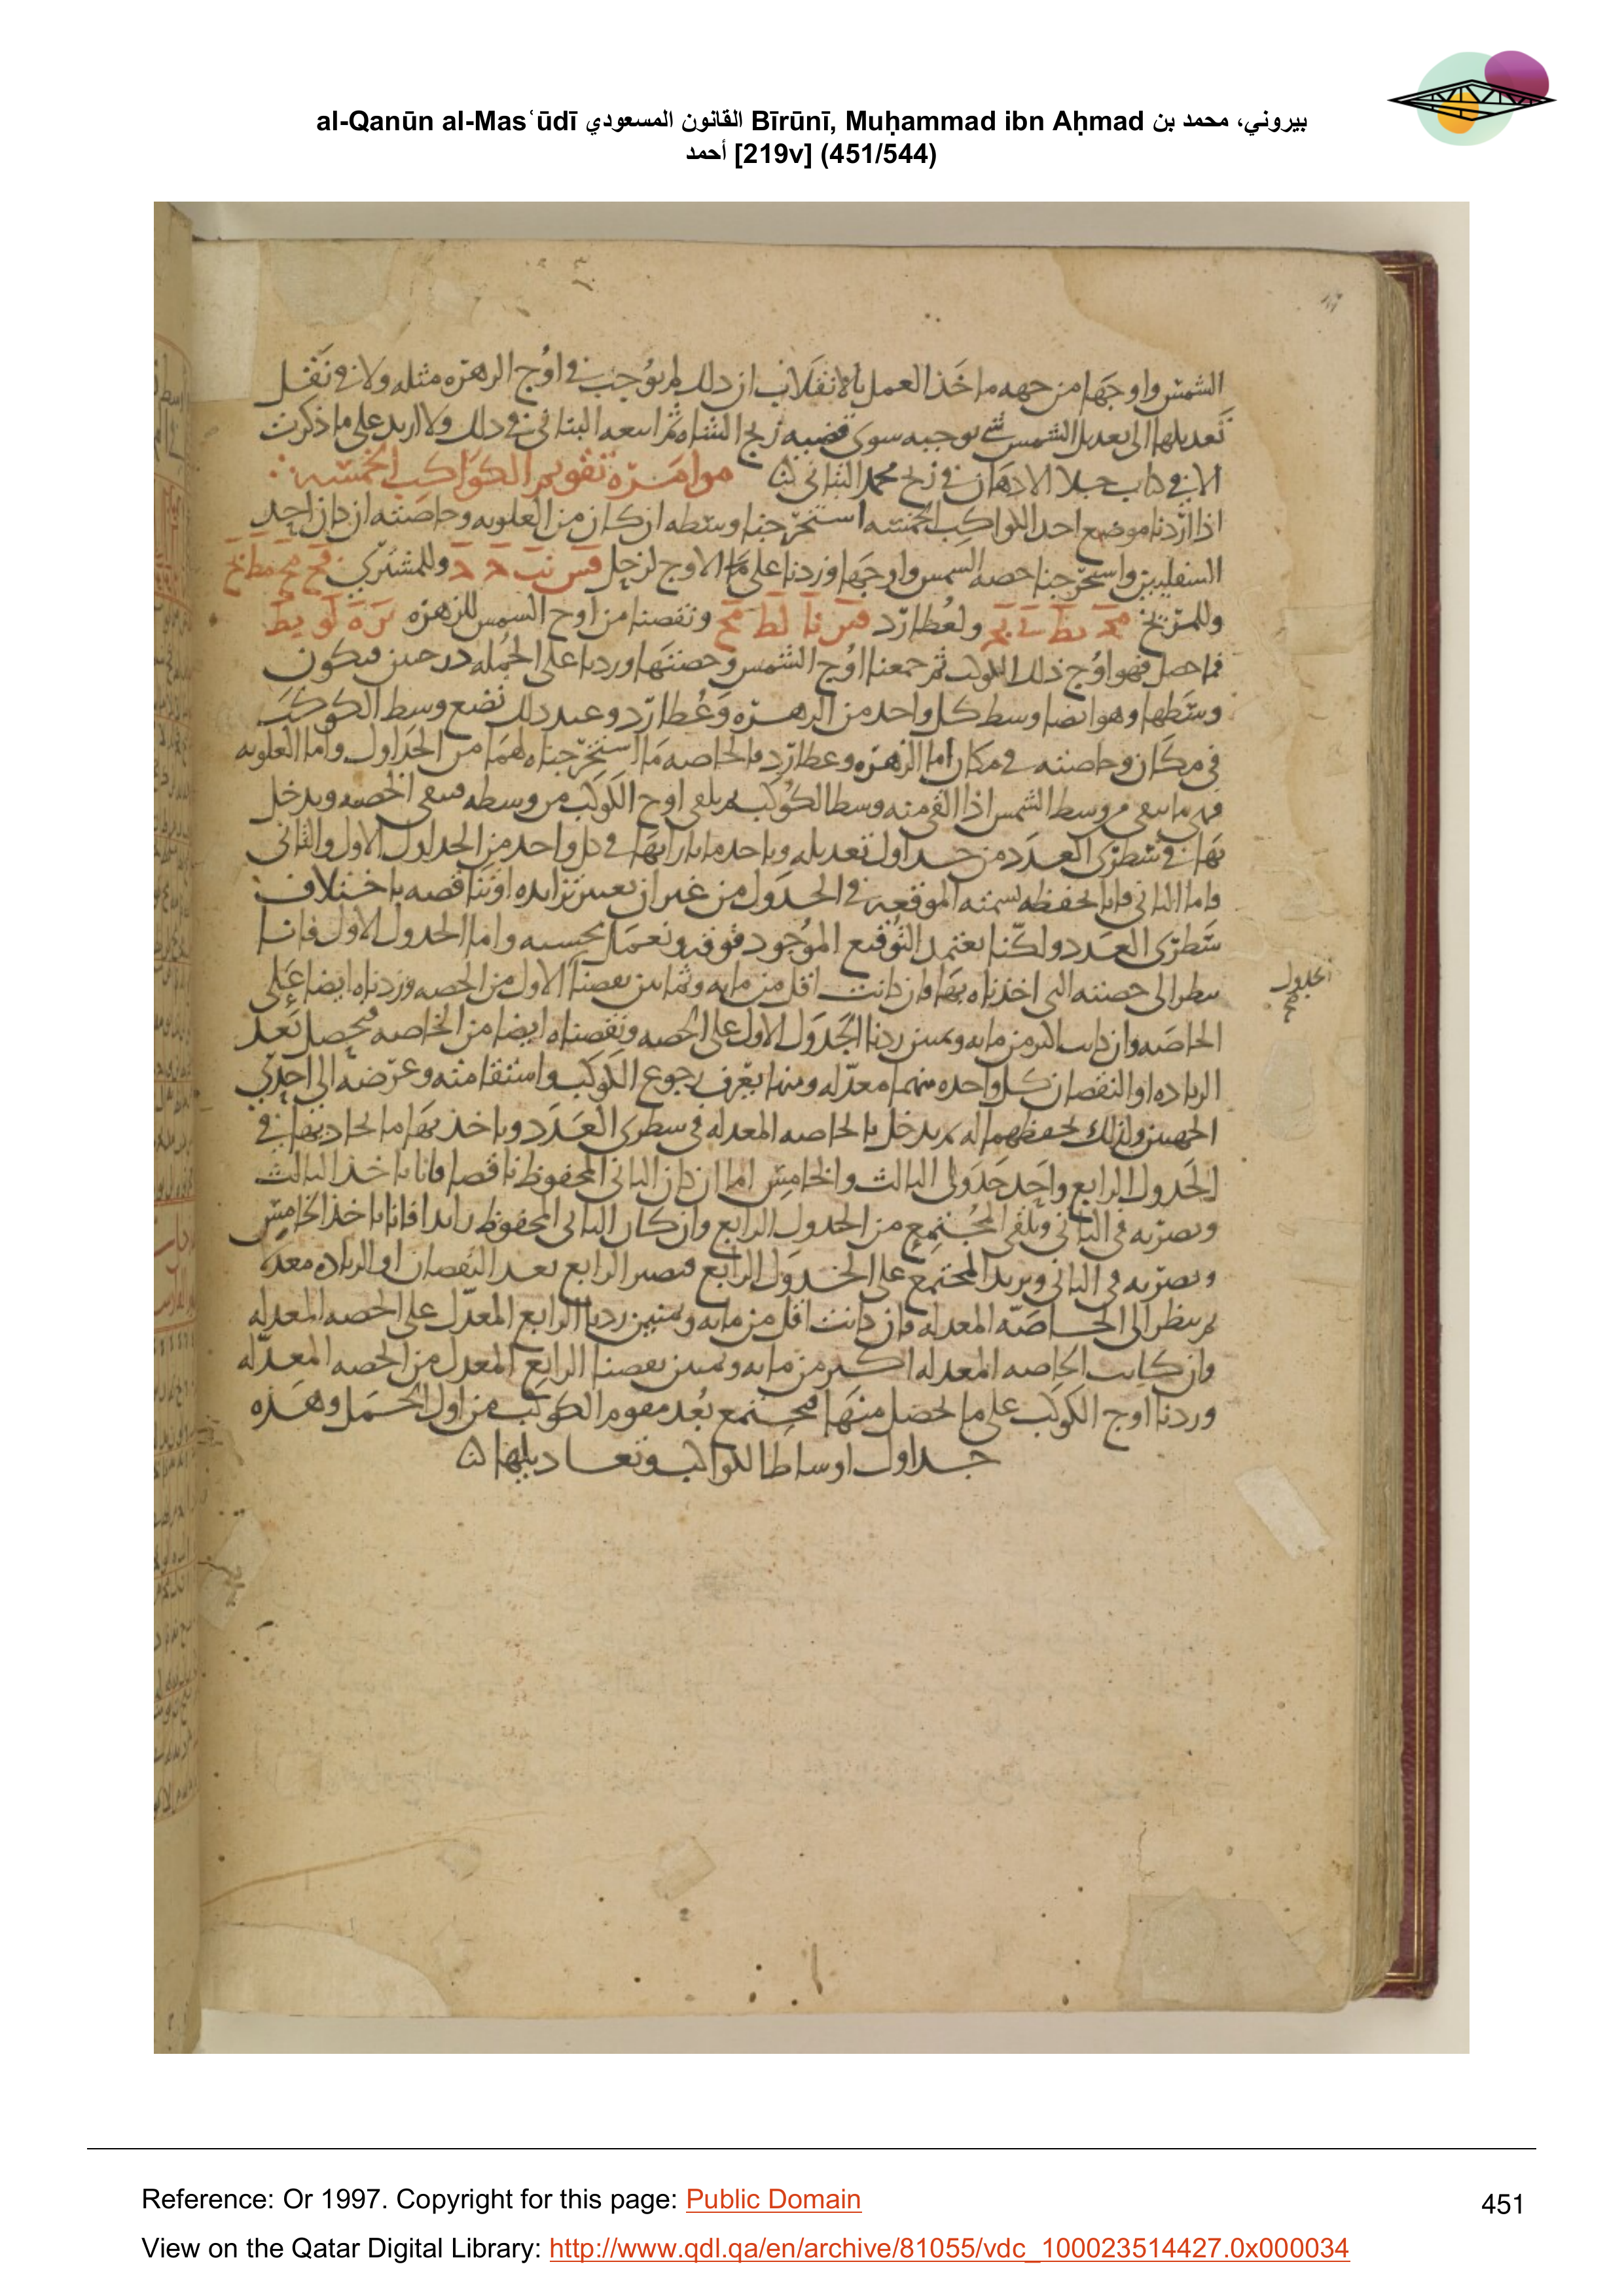 al-Qanūn al-Masʿūdī القانون المسعودي Bīrūnī, Muḥammad ibn Aḥmad بيروني، محمد بن
أحمد [219v] (451/544)
الشمس واوجها من جهه ماخذ العمل بالانقلاب ان ذلك لم يوجب في اوج الزهره مثله ولا في نقل
تعديلها الى تعديل الشمس شي يوجبه سوى قضيه زيج الشاه ثم اتبعه البتاني في ذلك ولا ازيد على ما ذكرت
الا في كتاب جلا الاذهان في زيج محمد البتاني موامرة تقويم الكواكب الخمسه
اذا اردنا موضع احد الكواكب الخمسه استخرجنا وسطه ان كان من العلويه وخاصته ان كان احد
السفليين واستخرجنا حصه الشمس واوجها وزدنا على الاوج لزحل وللمشتري
وللمريخ ولعطارد ونقصنا من اوج الشمس للزهره
فما حصل فهو اوج ذلك الكوكب ثم جمعنا اوج الشمس وحصتها وزدنا على الجمله درجتين فيكون
وسطها وهو ايضا وسط كل واحد من الزهره وعطارد وعند ذلك نضع وسط الكوكب
في مكان وخاصته في مكان اما الزهره وعطارد فالخاصه ما استخرجناه لهما من الجداول واما العلويه
فهي ما يبقى من وسط الشمس اذا القي منه وسط الكوكب ثم يلقى اوج الكوكب من وسطه فيبقى الحصه ويدخل
بها في سطري العدد من جداول تعديله وياخذ ما بازايها في كل واحد من الجداول الاول والثاني
فاما الثاني فانا نحفظه لسمته الموقعه في الجدول من غير ان نعتبر تزايده او تناقصه باختلاف
سطري العدد ولكنا نعتمد التوقيع الموجود فوقه ونعمل بحسبه واما الجدول الاول فانا
ننظر الى حصته التي اخذناه بها فان كانت اقل من مايه وثمانين نقصنا الاول من الحصه وزدناه ايضا على
الخاصه وان كانت اكثر من مايه وثمنين زدنا الجدول الاول على الحصه ونقصناه ايضا من الخاصه فيحصل بعد
الزياده او النقصان كل واحده منهما معدله ومنها يعرف رجوع الكوكب واستقامته وعرضه الى احدى
الجهتين ولذلك نحفظهما له ثم يدخل بالخاصه المعدله في سطري العدد وياخذ بها ما يحاذيها في
الجدول الرابع واحد جدولي الثالث والخامس اما ان كان الثاني المحفوظ ناقصا فانا ناخذ الثالث
ونضربه في الثاني ونلقي المجتمع من الجدول الرابع وان كان الثاني المحفوظ زايدا فانا ناخذ الخامس
ونضربه في الثاني ونزيد المجتمع على الجدول الرابع فيصير الرابع بعد النقصان او الزياده معدلا
ثم ننظر الى الخاصه المعدله فان كانت اقل من مايه وثمنين زدنا الرابع المعدل على الحصه المعدله
وان كانت الخاصه المعدله اكثر من مايه وثمنين نقصنا الرابع المعدل من الحصه المعدله
وزدنا اوج الكوكب على ما يحصل منها فيجتمع بعد مقوم الكوكب من اول الحمل وهذه
جداول اوساط الكواكب وتعاديلها
Reference: Or 1997. Copyright for this page: Public Domain
451
View on the Qatar Digital Library: http://www.qdl.qa/en/archive/81055/vdc_100023514427.0x000034